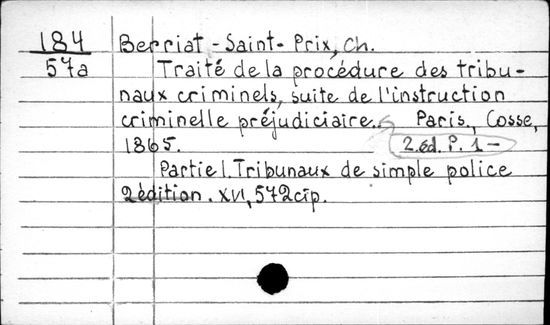 184 Berriat-Saint-Prix, Ch.
57a Traité de la procédure des tribu-
naux criminels, suite de l'instruction
criminelle préjudiciaire.. Paris, Cosse,
1865. 2.éd. P. 1-
Partie 1. Tribunaux de simple police
2 édition. XVI, 572 cтр.